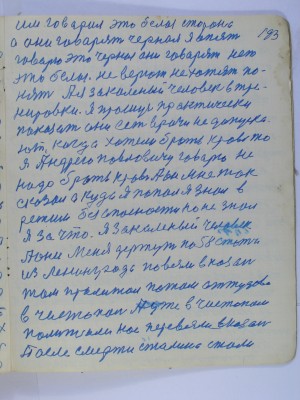 193
им говорил это белая сторона
а они говорят черная я опять
говорю это черная они говорят нет
это белая. не верют не хотят по-
нять Ая закаленый человек в тре-
нировки. Я прошуся практически
показать они сет врачи не допуска-
ют, когда хотели брать кровь то
я Андрею говорю не
надо брать кровь Авы мне так
сказал а куда я попал я знал в
безопасности но не знал
я за что. Я закаленый человек
Аони меня держут по 58 статьи
из Ленинграда повезли в казан
там пролежал потом оттудово
в чистопол Ауже в чистополи
полежали нас перевезли в казан
После смерти сталина стали